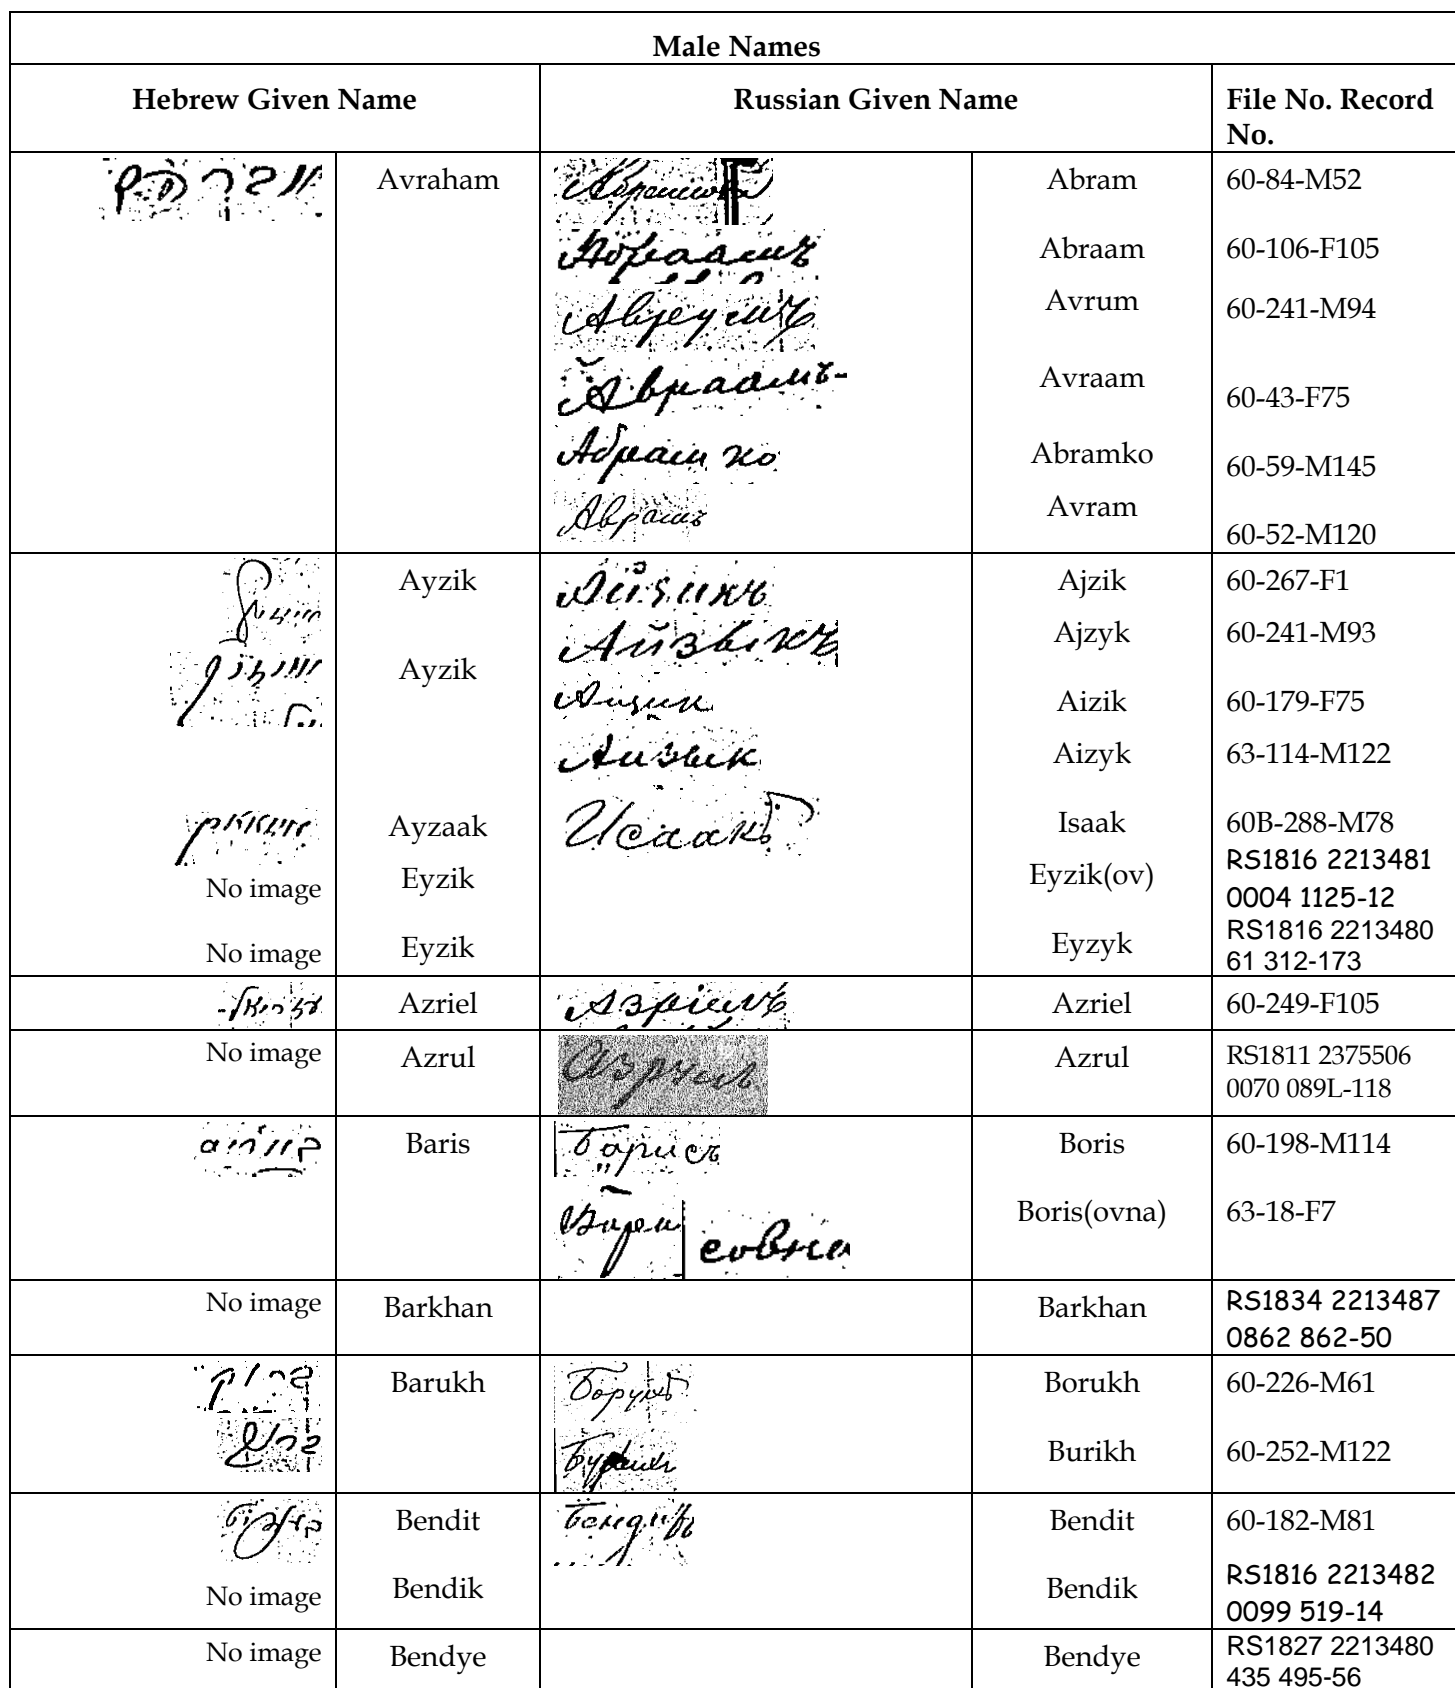 Male Names
Hebrew Given Name Russian Given Name File No. Record
No.
Avraham Abram 60-84-M52
Абраамъ Abraam 60-106-F105
Аврумъ Avrum 60-241-M94
Авраамъ Avraam 60-43-F75
Абрамко Abramko 60-59-M145
Аврамъ Avram 60-52-M120
Ayzik Айзикъ Ajzik 60-267-F1
Ayzik Айзыкъ Ajzyk 60-241-M93
Аизик Aizik 60-179-F75
Аизык Aizyk 63-114-M122
Ayzaak Исаакъ Isaak 60B-288-M78
No image Eyzik Eyzik(ov) RS1816 2213481
0004 1125-12
No image Eyzik Eyzyk RS1816 2213480
61 312-173
עזריאל Azriel Азріель Azriel 60-249-F105
No image Azrul Азруль Azrul RS1811 2375506
0070 089L-118
Baris Барисъ Boris 60-198-M114
Бари совна Boris(ovna) 63-18-F7
No image Barkhan Barkhan RS1834 2213487
0862 862-50
ברוך Barukh Борухъ Borukh 60-226-M61
Burikh 60-252-M122
Bendit Бендитъ Bendit 60-182-M81
No image Bendik Bendik RS1816 2213482
0099 519-14
No image Bendye Bendye RS1827 2213480
435 495-56